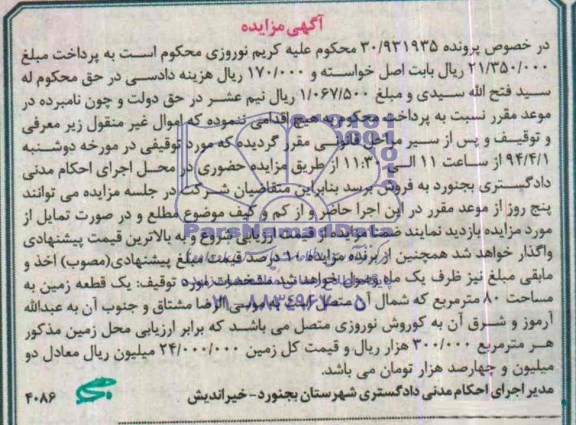 آگهی مزایده
در خصوص پرونده ۳۰/۹۳۱۹۳۵ محکوم علیه کریم نوروزی محکوم است به پرداخت مبلغ
۲۱/۳۵۰/۰۰۰ ریال بابت اصل خواسته و ۱۷۰/۰۰۰ ریال هزینه دادرسی در حق محکوم له
سید فتح الله سیدی و مبلغ ۱/۰۶۷/۵۰۰ ریال نیم عشر در حق دولت و چون نامبرده در
موعد مقرر نسبت به پرداخت محکوم‌به هیچ اقدامی ننموده که اموال غیر منقول زیر معرفی
و توقیف و پس از سیر مراحل قانونی مقرر گردیده که مورد توقیفی در مورخه دوشنبه
۹۴/۴/۱ از ساعت ۱۱ الی ۱۱:۳۰ از طریق مزایده حضوری در محل اجرای احکام مدنی
دادگستری بجنورد به فروش برسد بنابراین متقاضیان شرکت در جلسه مزایده می توانند
پنج روز از موعد مقرر در این اجرا حاضر و از کم و کیف موضوع مطلع و در صورت تمایل از
مورد مزایده بازدید نمایند ضمنا مزایده از قیمت ارزیابی شروع و به بالاترین قیمت پیشنهادی
واگذار خواهد شد همچنین از برنده مزایده ۱۰ درصد قیمت مبلغ پیشنهادی(مصوب) اخذ و
مابقی مبلغ نیز ظرف یک ماه وصول خواهد شد. مشخصات مورد توقیف: یک قطعه زمین به
مساحت ۸۰ مترمربع که شمال آن متصل است به موسی الرضا مشتاق و جنوب آن به عبدالله
آرموز و شرق آن به کوروش نوروزی متصل می باشد که برابر ارزیابی محل زمین مذکور
هر مترمربع ۳۰۰/۰۰۰ هزار ریال و قیمت کل زمین ۲۴/۰۰۰/۰۰۰ میلیون ریال معادل دو
میلیون و چهارصد هزار تومان می باشد.
مدیر اجرای احکام مدنی دادگستری شهرستان بجنورد-خیراندیش
۴۰۸۶
ParsNamadData
۰۲۱-۸۸۳۴۹۶۷۰-۵